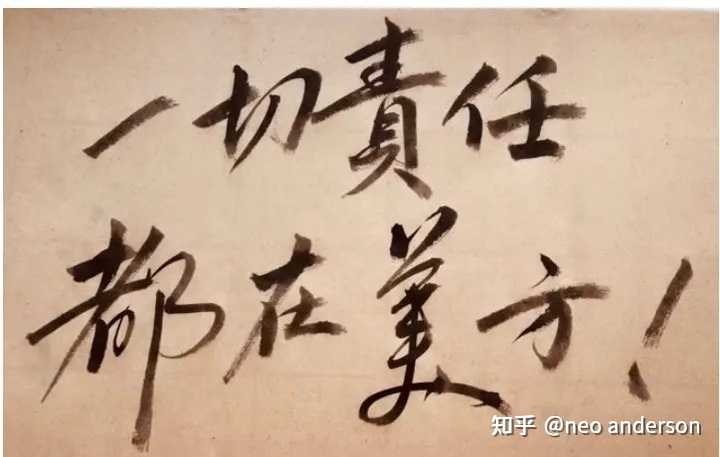 一切責任
都在美方!
知乎 @neo anderson